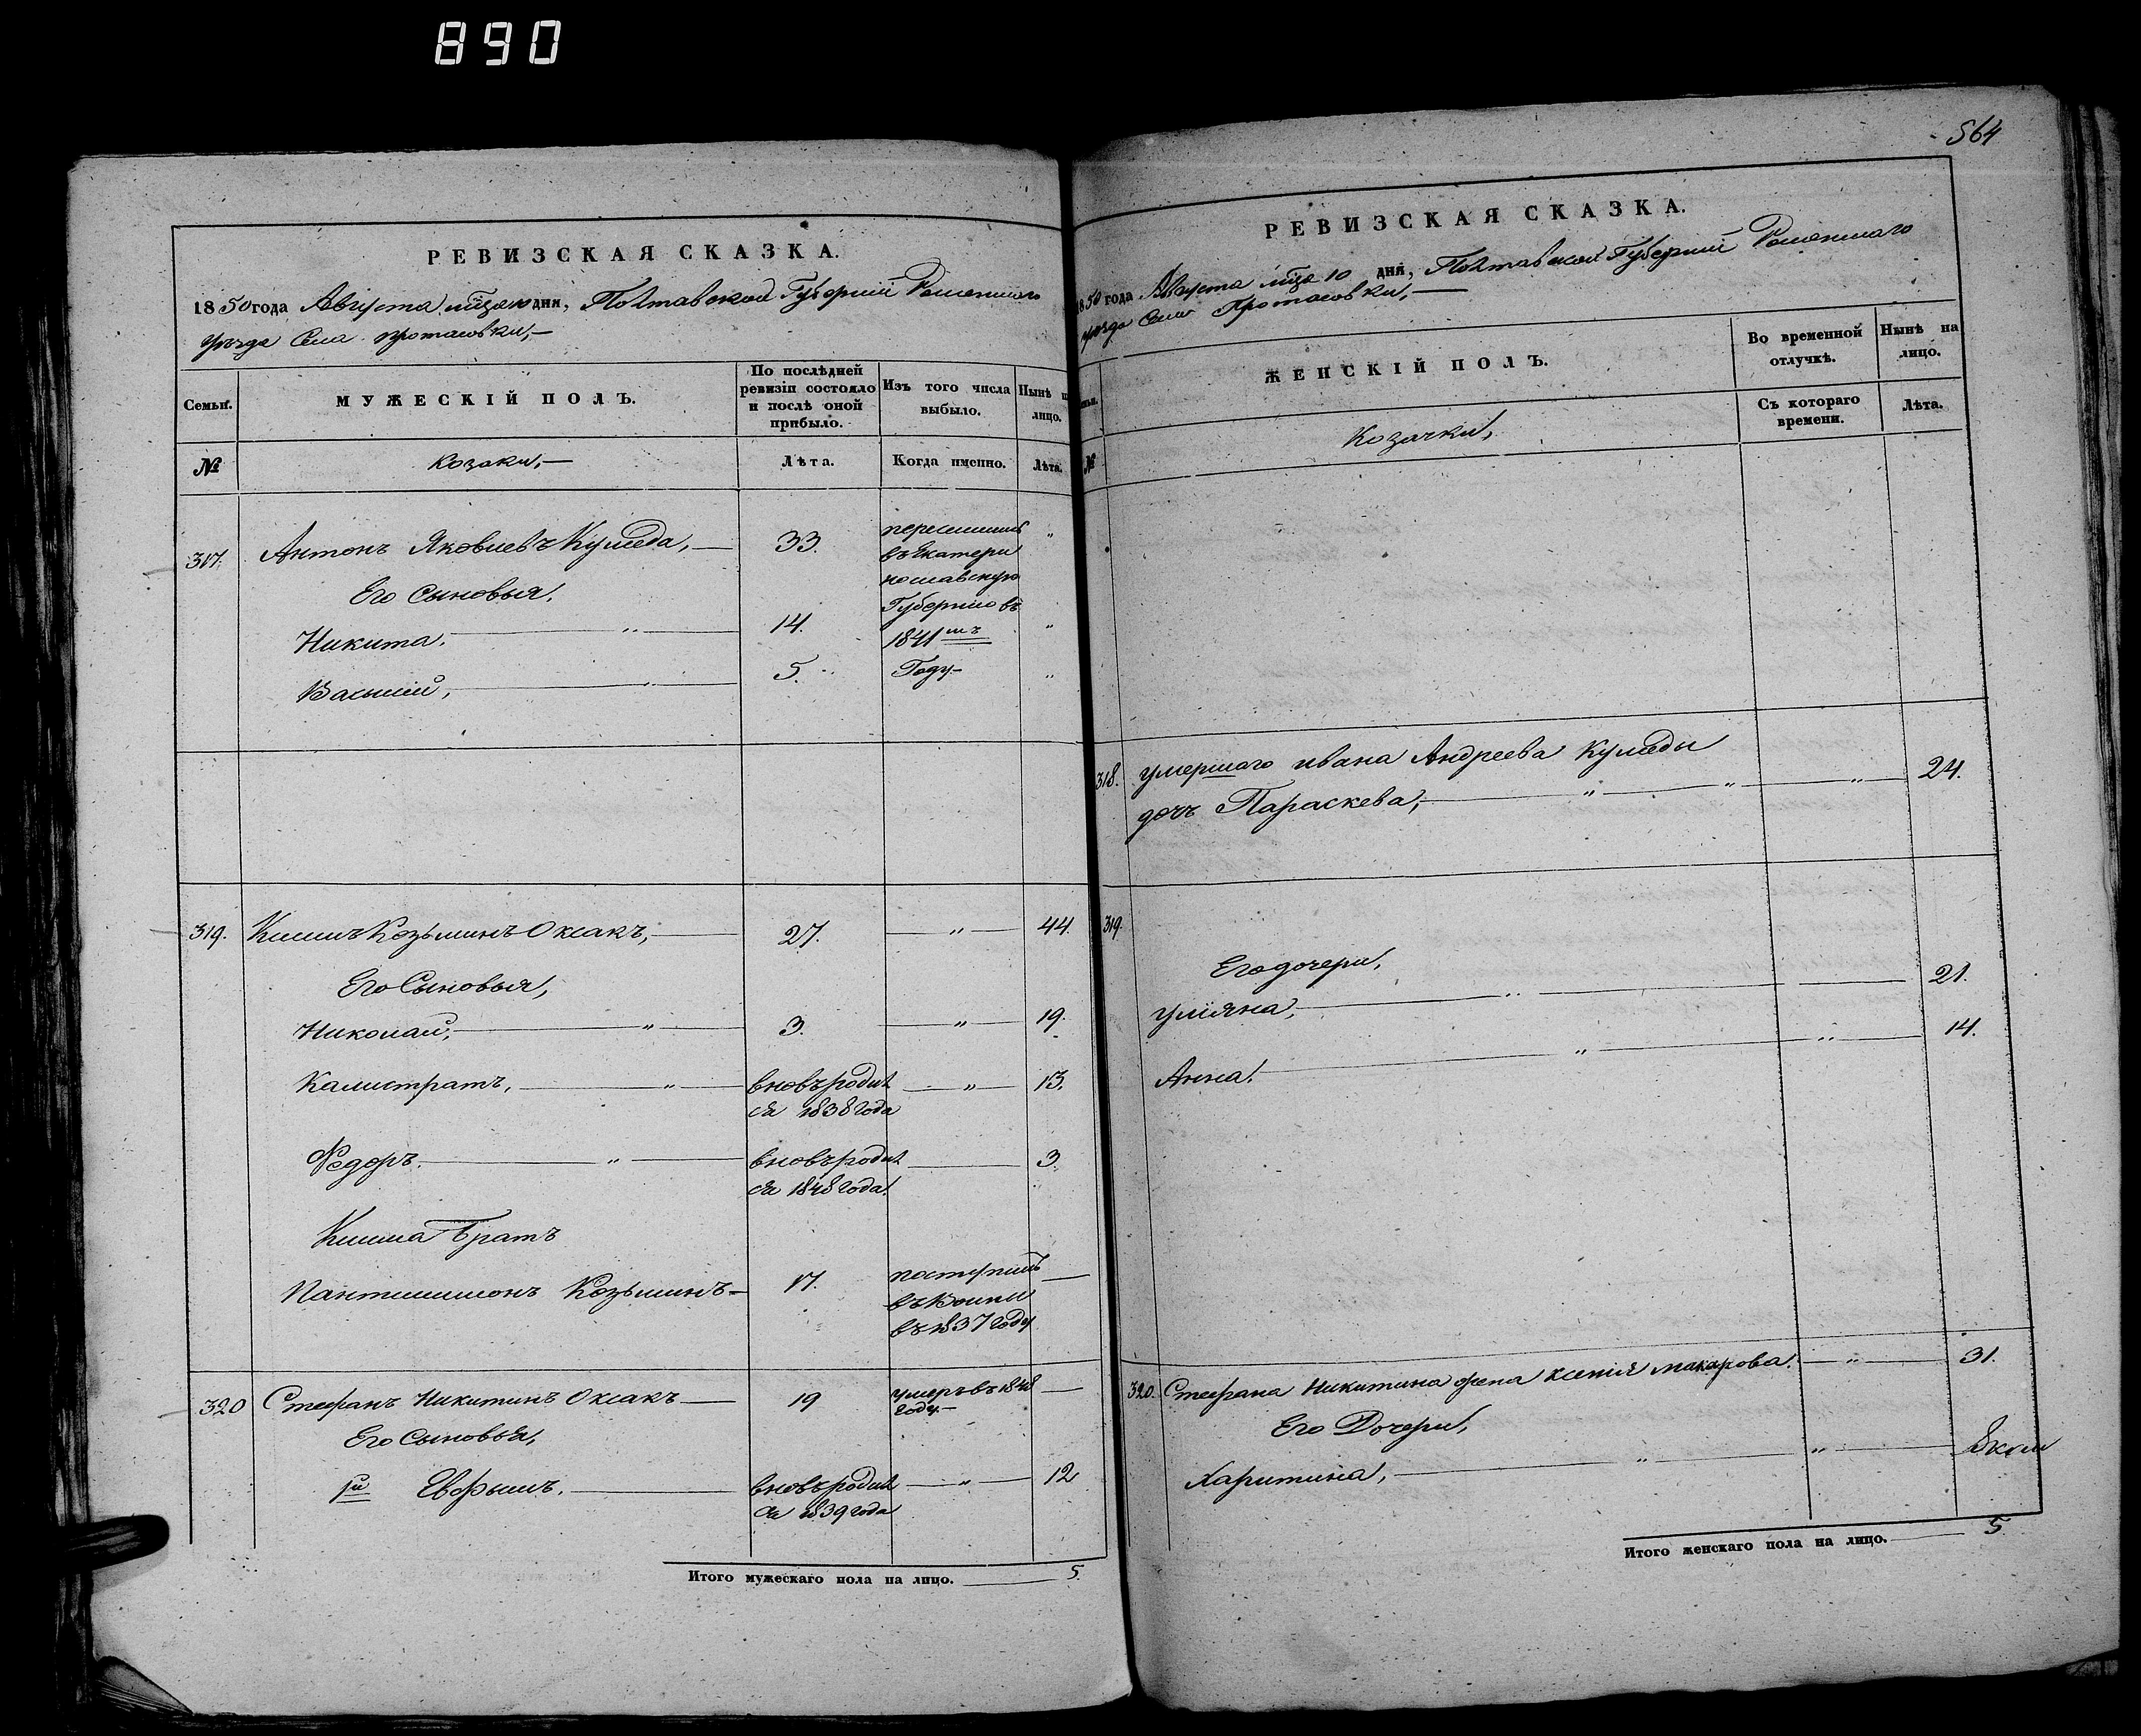 890
РЕВИЗСКАЯ СКАЗКА.
1850 года Августа мца 10 дня, Полтавской Губерніи Роменскаго
уезда Села Протасовки,—
Семьи.
МУЖЕСКІЙ ПОЛЪ.
По послѣдней ревизіи состояло и послѣ оной прибыло.
Изъ того числа выбыло.
Нынѣ
лицо.
№
Козаки,—
Лѣта.
Когда именно.
Лѣта.
317. Антонъ Яковлевъ Кулиеда, — 33. переселился "
въ Екатери
нославскую
Его Сыновья,
Губернію въ
Никита. " 14. 1841мъ "
Василій, " 5. Году— "
319. Климъ Козьминъ Оксакъ, — 27. " 44.
Его Сыновья,
Николай, " 3. " 19.
Калистратъ, " вновь родил " 13.
ся 1838 года
Федоръ. " вновь родил 3.
ся 1848 года.
Клима Братъ
Пантилимонъ Козьминъ— 17. поступилъ —
въ
въ 1837 году
320 Стефанъ Никитинъ Оксакъ — 19 умеръ въ 1848 —
году—
Его Сыновья,
1й Евфимъ. вновь родил " 12
ся 1839 года
Итого мужескаго пола на лицо. 5.
564
РЕВИЗСКАЯ СКАЗКА.
1850 года Августа мца 10 дня, Полтавской Губерніи Роменскаго
уезда Села Протасовки,—
ЖЕНСКІЙ ПОЛЪ.
Во временной отлучкѣ.
Нынѣ на лицо.
№
Козачки,
Съ котораго времени.
Лѣта.
318. умершаго ивана Андреева Кулиеды
дочь Параскева, " " " 24.
319.
Его дочери,
улияна, " 21.
Анна. " " 14.
320. Стефана Никитина жена ксенія макарова. " 31.
Его Дочери,
Харитина, " "
Итого женскаго пола на лицо. 5